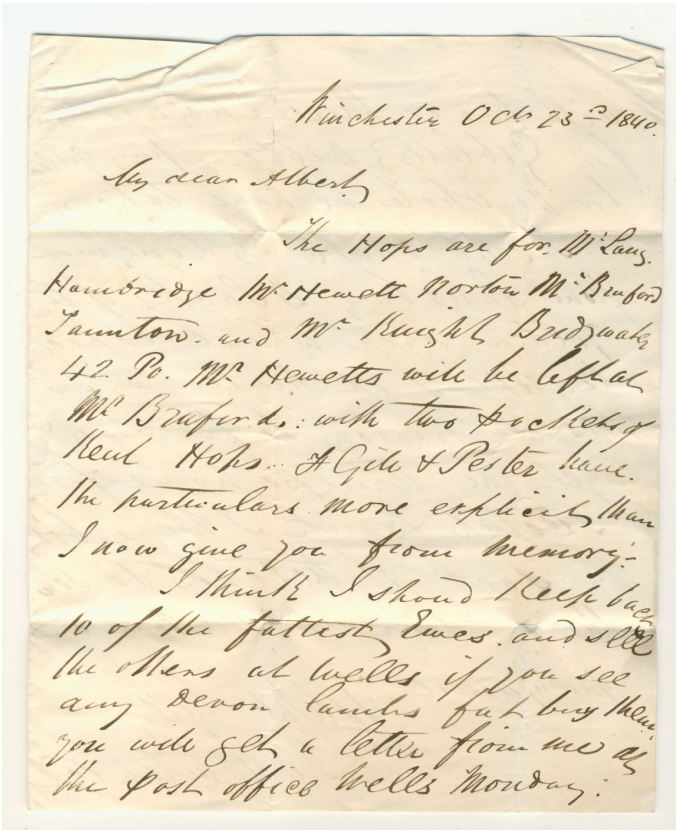 Winchester Octr 23rd 1840.
My dear Albert,
The Hops are for Mr Lang.
Hambridge Mr Hewett Norton Mr Bruford
Taunton. and Mr Knight Bridgwater
42 Po. Mr Hewetts will be left at
Mr Brufords. with two pockets of
Kent Hops. Gill & Pester have.
the particulars more explicit than
I now give you from memory.
I think I should keep back
10 of the fattest Ewes. and sell
the others at Wells if you see
any Devon lambs fat buy them.
you will get a letter from me at
the post office Wells Monday.